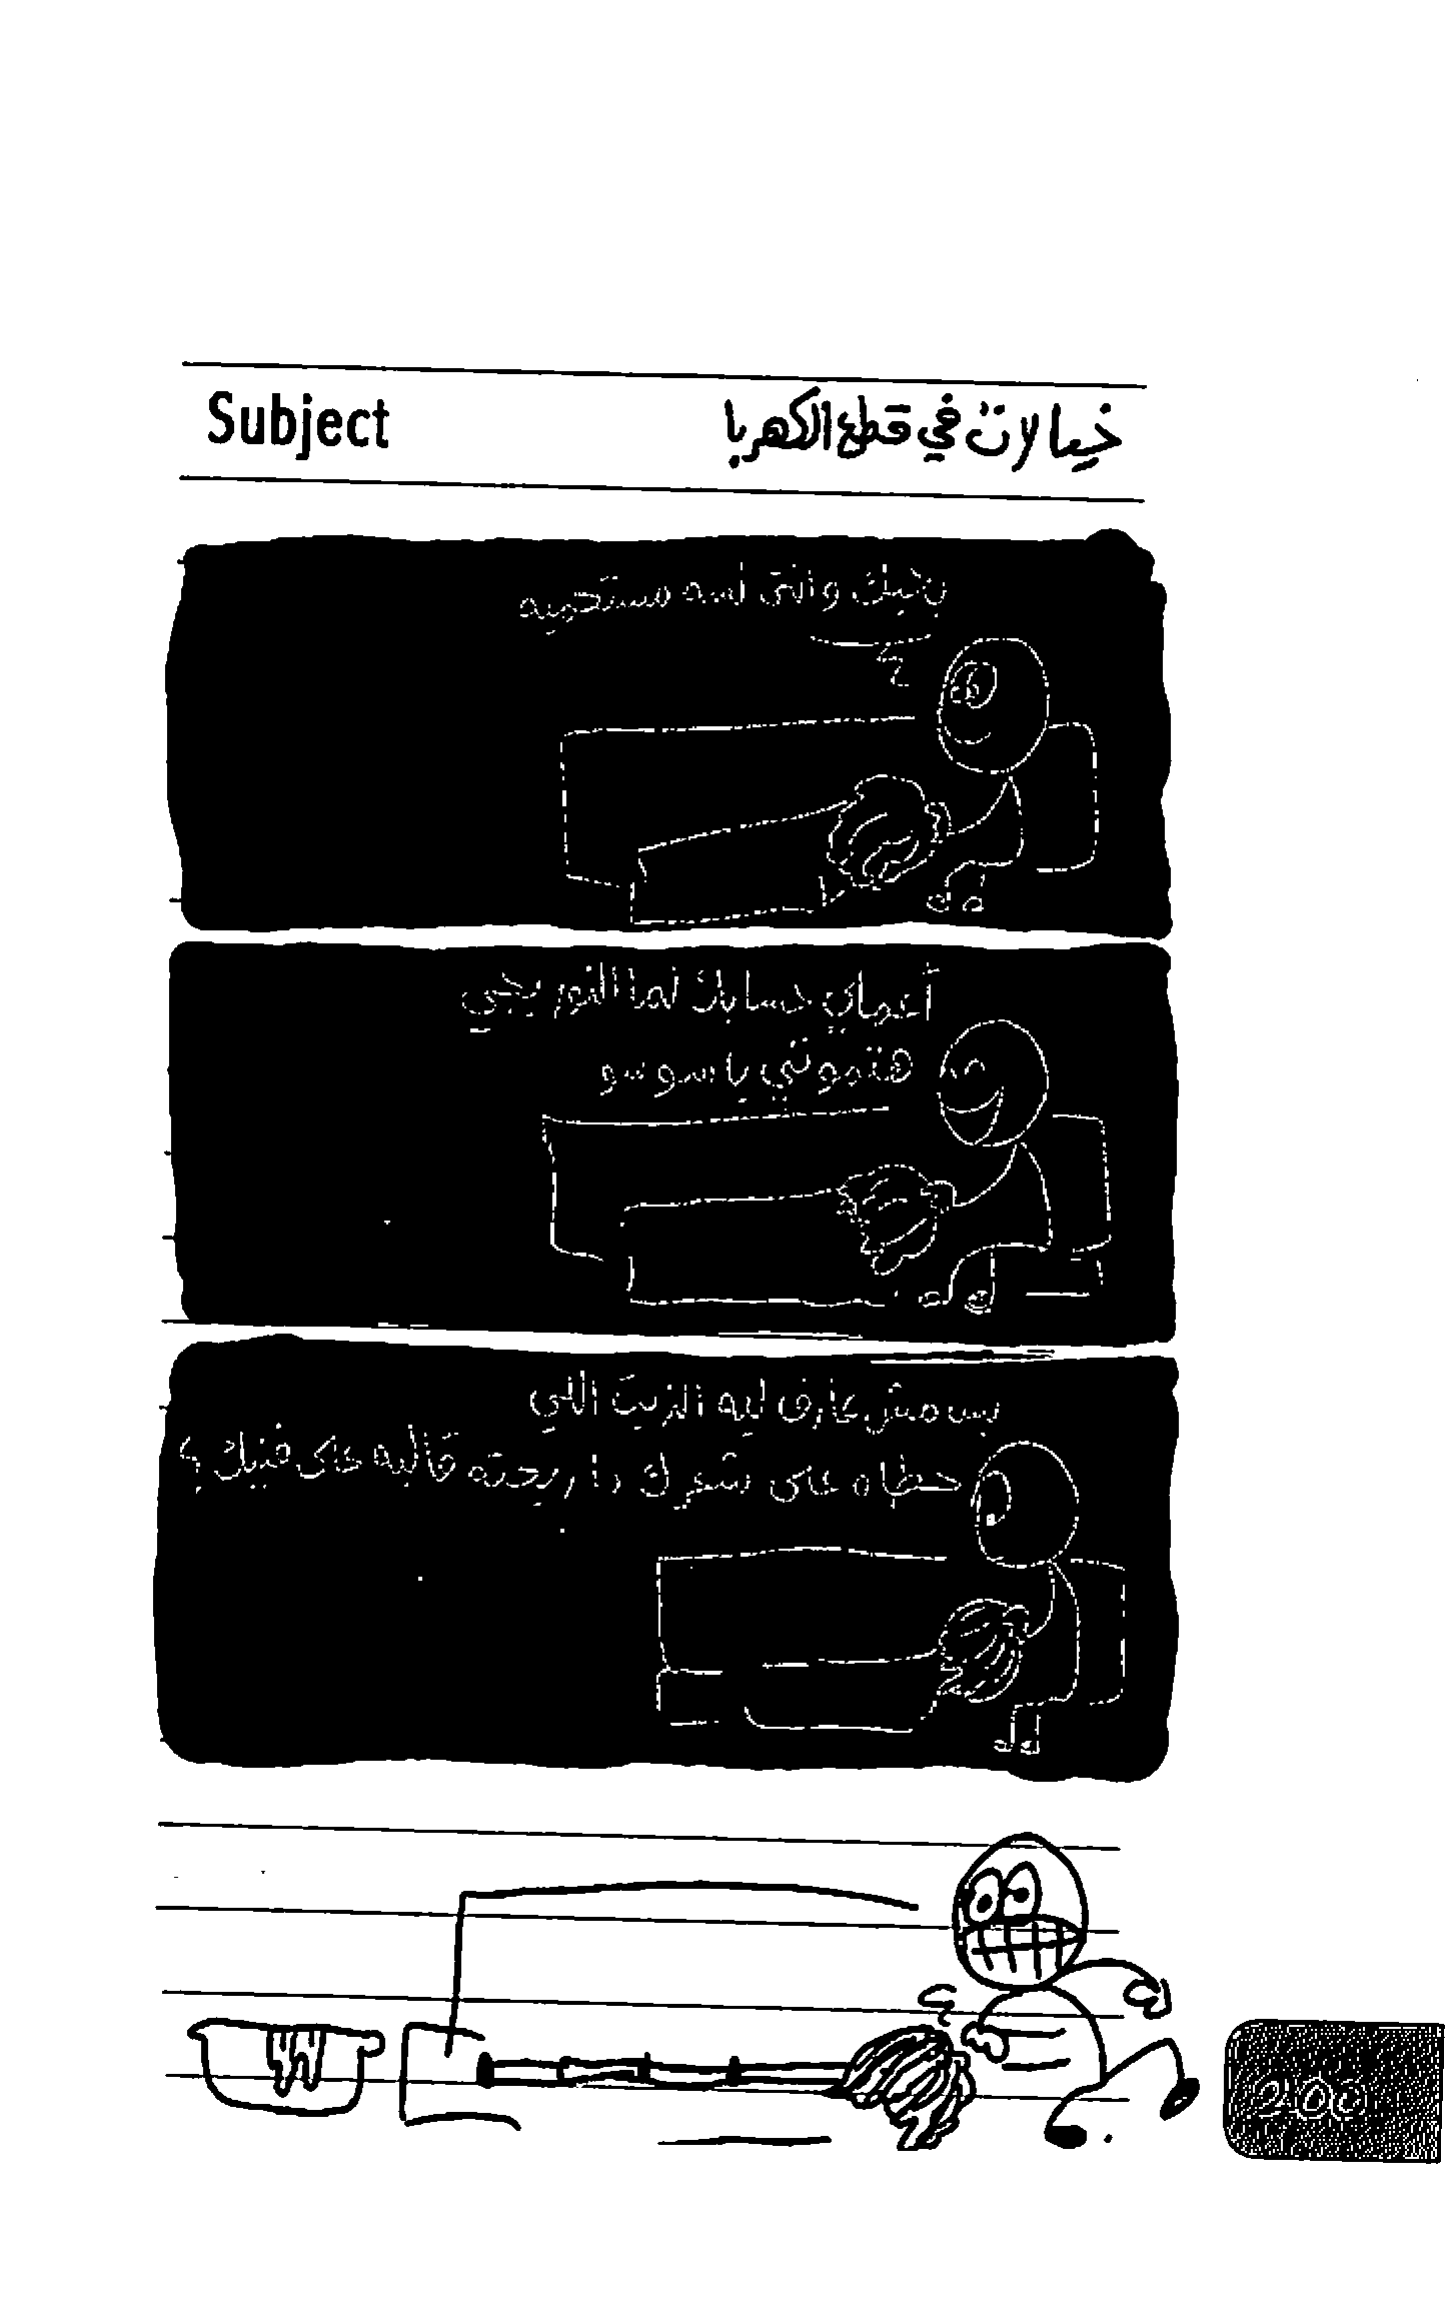 Subject
خيالات في قطع الكهربا
بحبك وانتي لسه مستحميه
أعملي حسابك لما النور يجي
هتموتني يا سوسو
بس مش عارف ليه الزيت اللي
حطاه على شعرك دا ريحته قالبه على فنيك؟
200